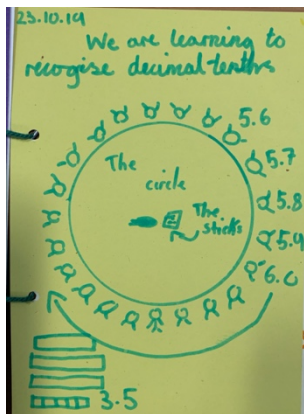 23.10.19
We are learning to
recogise decimal tenths
5.6
The
5.7
circle
5.8
The
sticks
5.9
6.0
3.5